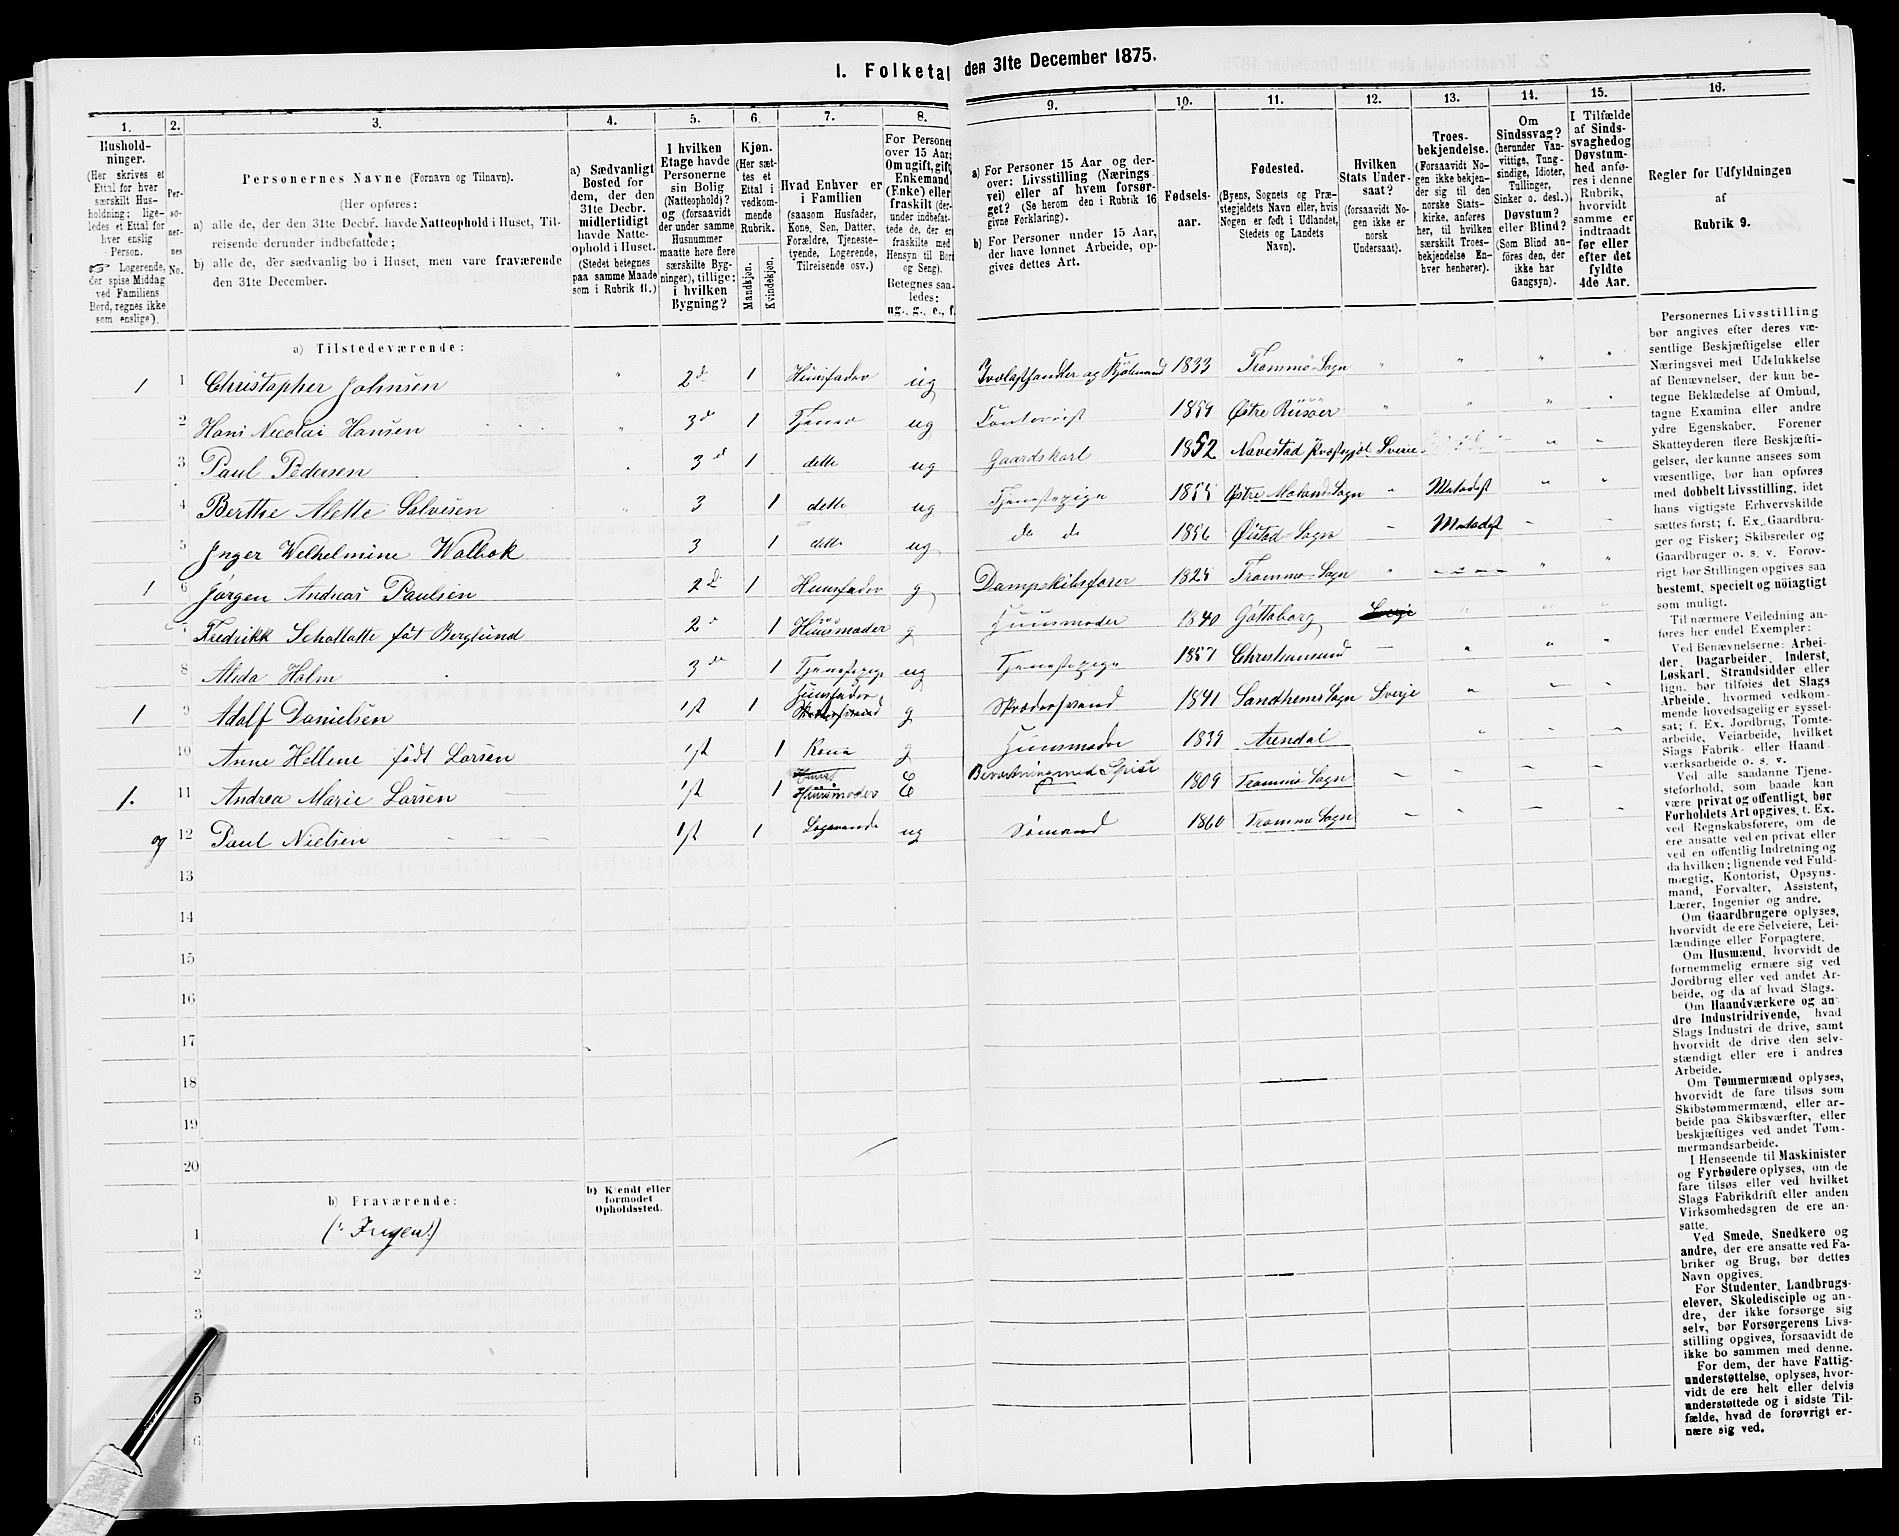 I. Folketal den 31te December 1875.
1. 2. 3. 4. 5. 6. 7. 8. 9. 10. 11. 12. 13. 14. 15. 16.
Hushold-
ninger.
(Her skrives et
Ettal for hver
særskilt Hus-
holdning; lige-
ledes et Ettal for
hver enslig
Person.
☞ Logerende,
der spise Middag
ved Familiens
Bord, regnes ikke
som enslige).
Per-
so-
ner-
nes
No.
Personernes Navne (Fornavn og Tilnavn).
(Her opføres:
a) alle de, der den 31te Decbr. havde Natteophold i Huset, Til-
reisende derunder indbefattede;
b) alle de, der sædvanlig bo i Huset, men vare fraværende
den 31te December.
a) Sædvanligt
Bosted for
dem, der den
31te Decbr.
midlertidigt
havde Natte-
ophold i Huset.
(Stedet betegnes
paa samme Maade
som i Rubrik 11.)
I hvilken
Etage havde
Personerne
sin Bolig
(Natteophold)?
og (forsaavidt
der under samme
Husnummer
maatte høre flere
særskilte Byg-
ninger), tillige:
i hvilken
Bygning?
Kjøn.
(Her sæt-
tes et
Ettal i
vedkom-
mende
Rubrik.
Mandkjøn.
Kvindekjøn.
Hvad Enhver er
i Familien
(saasom Husfader,
Kone, Søn, Datter,
Forældre, Tjeneste-
tyende, Logerende,
Tilreisende osv.)
For Personer
over 15 Aar:
Om ugift, gift,
Enkemand
(Enke) eller
fraskilt (der-
under indbefat-
tede de, der ere
fraskilte med
Hensyn til Bord
og Seng).
Betegnes saa-
ledes:
ug., g., e., f.
a) For Personer 15 Aar og der-
over: Livsstilling (Nærings-
vei) eller af hvem forsør-
get? (Se herom den i Rubrik 16
givne Forklaring).
b) For Personer under 15 Aar,
der have lønnet Arbeide, op-
gives dettes Art.
Fødsels-
aar.
Fødested.
(Byens, Sognets og Præ-
stegjeldets Navn eller, hvis
Nogen er født i Udlandet,
Stedets og Landets
Navn).
Hvilken
Stats Under-
saat?
(forsaavidt No-
gen ikke er
norsk
Undersaat).
Troes-
bekjendelse.
(Forsaavidt No-
gen ikke bekjen-
der sig til den
norske Stats-
kirke, anføres
her, til hvilken
særskilt Troes-
bekjendelse En-
hver henhører).
Om
Sindssvag?
(herunder Van-
vittige, Tung-
sindige, Idioter,
Tullinger,
Sinker o. desl.)
Døvstum?
eller Blind?
(Som Blind an-
føres den, der
ikke har
Gangsyn).
I Tilfælde
af Sinds-
svaghed og
Døvstum-
hed anfø-
res i denne
Rubrik,
hvorvidt
samme er
indtraadt
før eller
efter det
fyldte
4de Aar.
Regler for Udfyldningen
af
Rubrik 9.
a) Tilstedeværende:
1 1 Christopher Johnsen " 2d 1 Huusfader ug 1833 Trommø Sogn " " " "
2 Hans Nicolai Hansen " 3d 1 Tjener ug Contorist 1859 Østre Riisøer " " " "
3 Paul Pedersen 3d 1 dette ug Gaardskarl 1852 Navestad Sverie
4 Berthe Alette Salvesen 3 1 dette ug Tjenestepige 1855 Østre Moland Sogn " Metodist " "
5 Inger Welhelmine Walbok 3 1 dette ug do do 1856 Øistad Sogn - Metodist - -
1 6 Jørgen Andreas Paulsen 2d 1 Huusfader g Dampskibsfører 1825 Trommø Sogn
7 Fredrikk Schallatte føt Berglund 2d 1 Huusmoder g Huusmoder 1840 Gøtteborg Sverje
8 Alida Holm 3de 1 Tjenestepige ug Tjenestepige 1857 Christiansund
1 9 Adolf Danielsen 1st 1 Huusfader Skrædersvend g Skrædersvend 1841 Sandhems Sogn Sverje
10 Anne Hellene født Larsen 1st 1 Kone g Huusmoder 1839 Arendal
1. 11 Andrea Marie Larsen 1st 1 Huusmoder E Beværtning med Spise 1809 Trommø Sogn
og 12 Paul Nielsen 1st 1 Logerende ug Sømand 1860 Trommø Sogn
13
14
15
16
17
18
19
20
b) Fraværende:
b) Kjendt eller
formodet
Opholdssted.
1 (: Ingen :)
2
3
5
6
Personernes Livsstilling
bør angives efter deres væ-
sentlige Beskjæftigelse eller
Næringsvei med Udelukkelse
af Benævnelser, der kun be-
tegne Beklædelse af Ombud,
tagne Examina eller andre
ydre Egenskaber. Forener
Skatteyderen flere Beskjæfti-
gelser, der kunne ansees som
væsentlige, bør han opføres
med dobbelt Livsstilling, idet
hans vigtigste Erhvervskilde
sættes først; f. Ex. Gaardbru-
ger og Fisker; Skibsreder og
Gaardbruger o. s. v. Forøv-
rigt bør Stillingen opgives saa
bestemt, specielt og nöiagtigt
som muligt.
Til nærmere Veiledning an-
føres her endel Exempler:
Ved Benævnelserne: Arbei-
der, Dagarbeider, Inderst,
Løskarl, Strandsidder eller
lign. bør tilføies det Slags
Arbeide, hvormed vedkom-
mende hovedsagelig er syssel-
sat; f. Ex. Jordbrug, Tomte-
arbeide, Veiarbeide, hvilket
Slags Fabrik- eller Haand-
værksarbeide o. s. v.
Ved alle saadanne Tjene-
steforhold, som baade kan
være privat og offentligt, bør
Forholdets Art opgives, t. Ex.
ved Regnskabsførere, om de
ere ansatte ved en privat eller
ved en offentlig Indretning og
da hvilken; lignende ved Fuld-
mægtig, Kontorist, Opsyns-
mand, Forvalter, Assistent,
Lærer, Ingeniør og andre.
Om Gaardbrugere oplyses,
hvorvidt de ere Selveiere, Lei-
lændinge eller Forpagtere.
Om Husmænd, hvorvidt de
fornemmelig ernære sig ved
Jordbrug eller ved andet Ar-
beide, og da af hvad Slags.
Om Haandværkere og an-
dre Industridrivende, hvad
Slags Industri de drive, samt
hvorvidt de drive den selv-
stændigt eller ere i andres
Arbeide.
Om Tømmermænd oplyses,
hvorvidt de fare tilsøs som
Skibstømmermænd, eller ar-
beide paa Skibsværfter, eller
beskjæftiges ved andet Tøm-
mermandsarbeide.
I Henseende til Maskinister
og Fyrbødere oplyses, om de
fare tilsøs eller ved hvilket
Slags Fabrikdrift eller anden
Virksomhedsgren de ere an-
satte.
Ved Smede, Snedkere og
andre, der ere ansatte ved Fa-
briker og Brug, bør dettes
Navn opgives.
For Studenter, Landbrugs-
elever, Skoledisciple og an-
dre, der ikke forsørge sig
selv, bør Forsørgerens Livs-
stilling opgives, forsaavidt de
ikke bo sammen med denne.
For dem, der have Fattig-
understøttelse, oplyses, hvor-
vidt de ere helt eller delvis
understøttede og i sidste Til-
fælde, hvad de forøvrigt er-
nære sig ved.